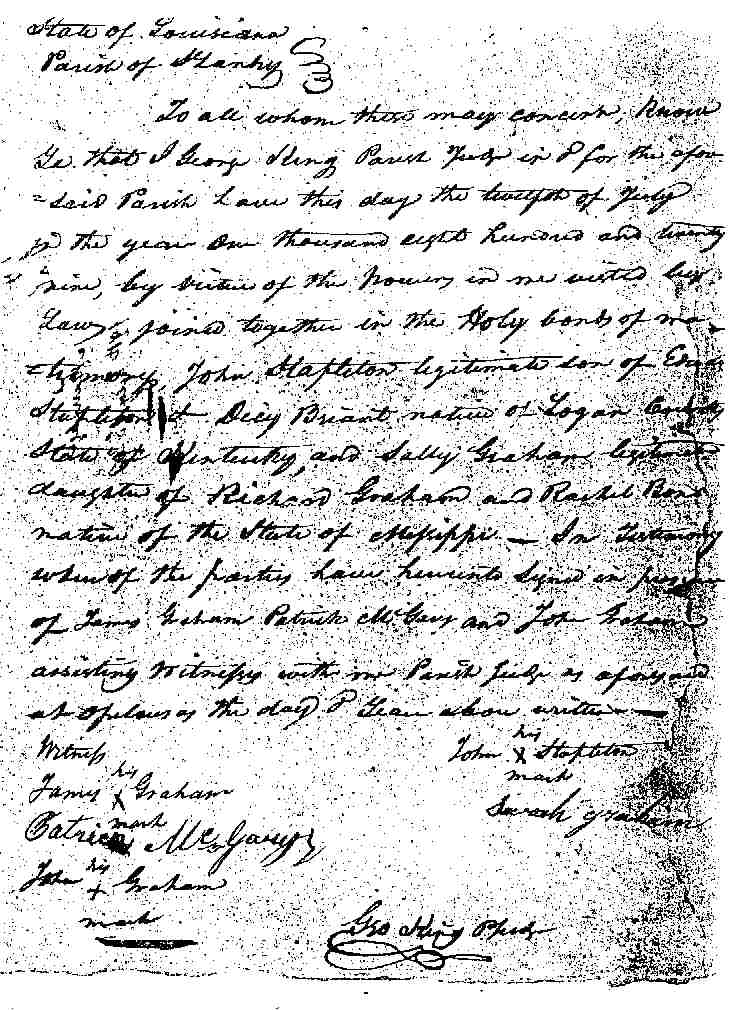 State of Louisiana
Parish of St Landry
To all whom these may concern, Know
Ye that I George King Parish Judge in & for the afore
=said Parish have this day the twelfth of July
in the year One thousand eight hundred and twenty
nine, by virtue of the Powers in me vested by
Law, joined together in the Holy bonds of ma
=trimony, John Stapleton legitimate son of
Stapleton & Dicy Briant native of Logan County
State of Kentucky, and Sally Graham legitimate
daughter of Richard Graham and Rachel
native of the State of Missippi — In Testimony
whereof the parties have hereunto Signed in presence
of James Graham Patrick McGary and John Graham
assisting Witnesses with me Parish Judge as aforesaid
at Opelousas the day & Year above written —
Witness
his
John X Stapleton
mark
his
James X Graham
mark
Sarah graham
Patrick McGary
his
John + Graham
mark
Geo King PJudge